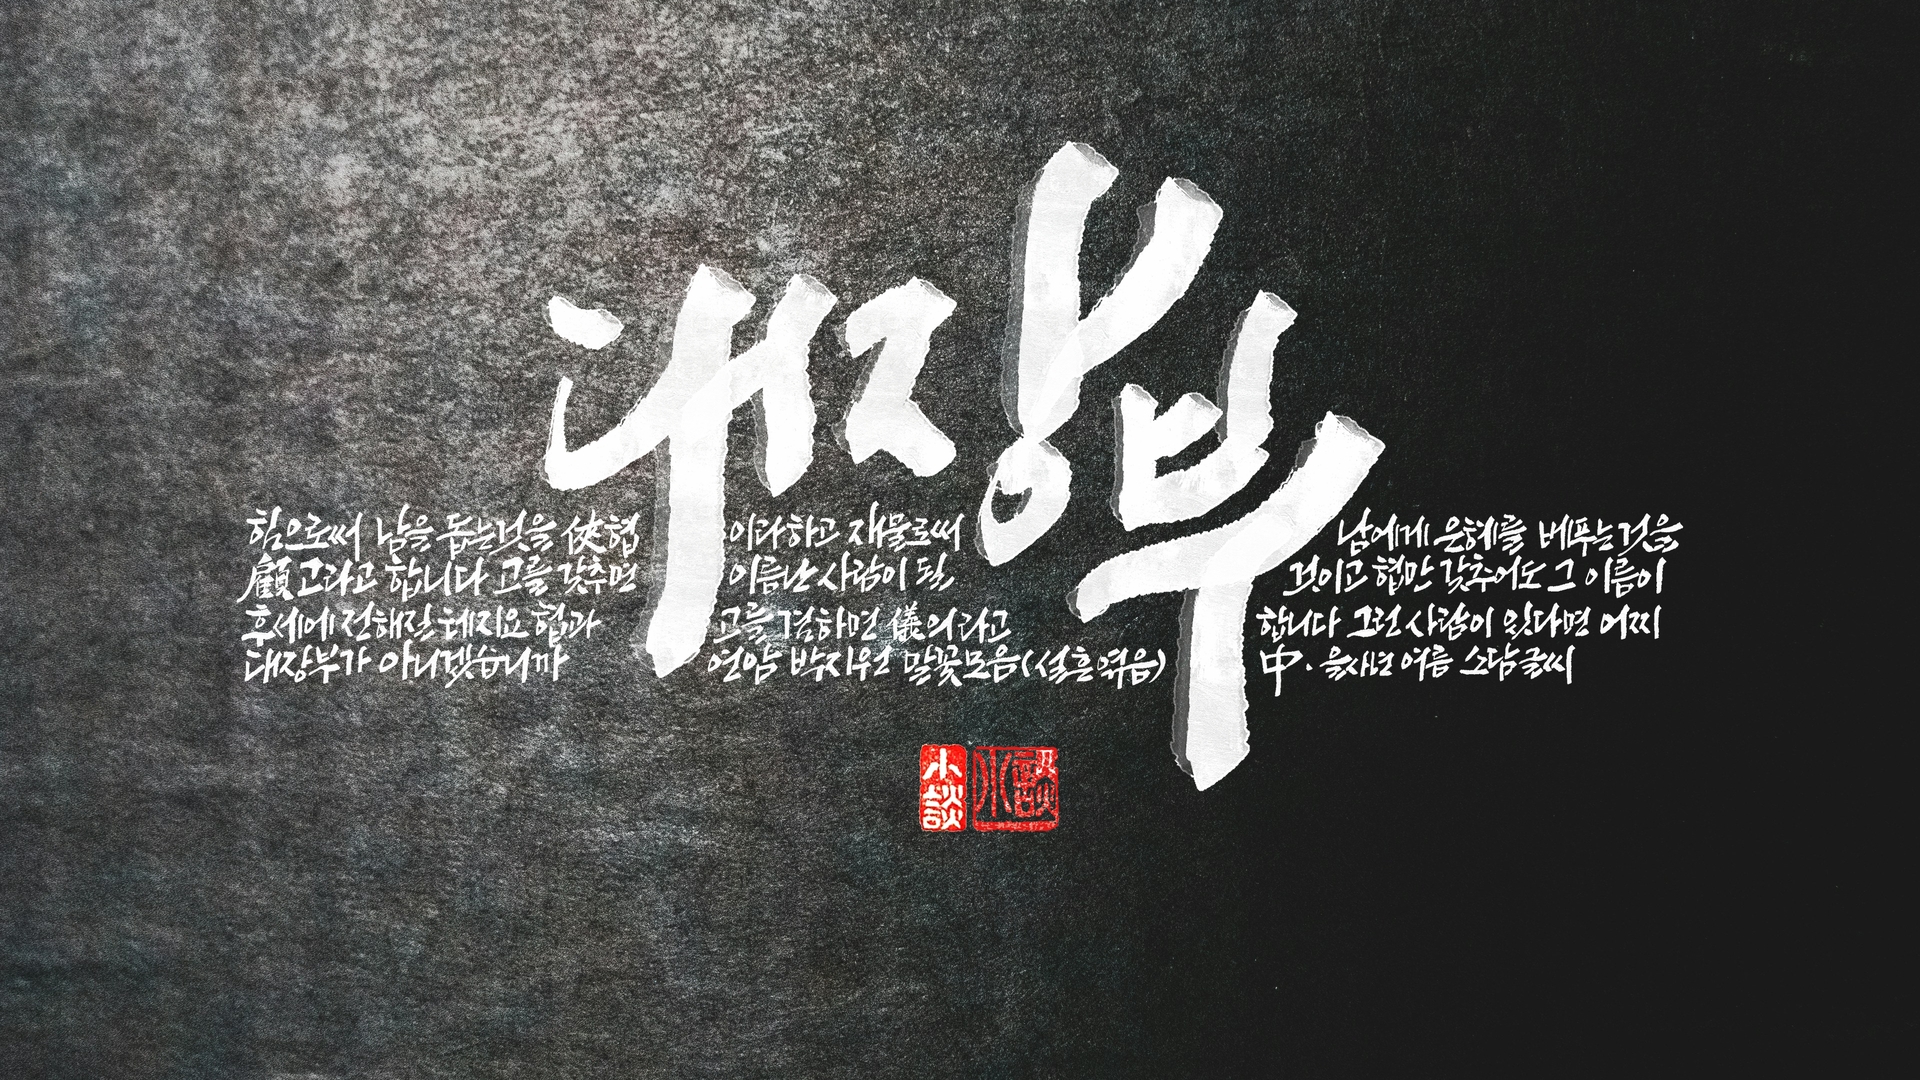 대장부
힘으로써 남을 돕는것을 俠협 이라하고 재물로써 남에게 은혜를 베푸는것을
顧고라고 합니다 고를 갖추면 이름난 사람이 될 것이고 협만 갖추어도 그 이름이
후세에 전해질 테지요 협과 고를 겸하면 儀의라고 합니다 그런 사람이 있다면 어찌
대장부가 아니겠습니까 연암 박지원 말꽃모음(설흔 엮음) 中· 을사년 여름 소담글씨
小談 小談